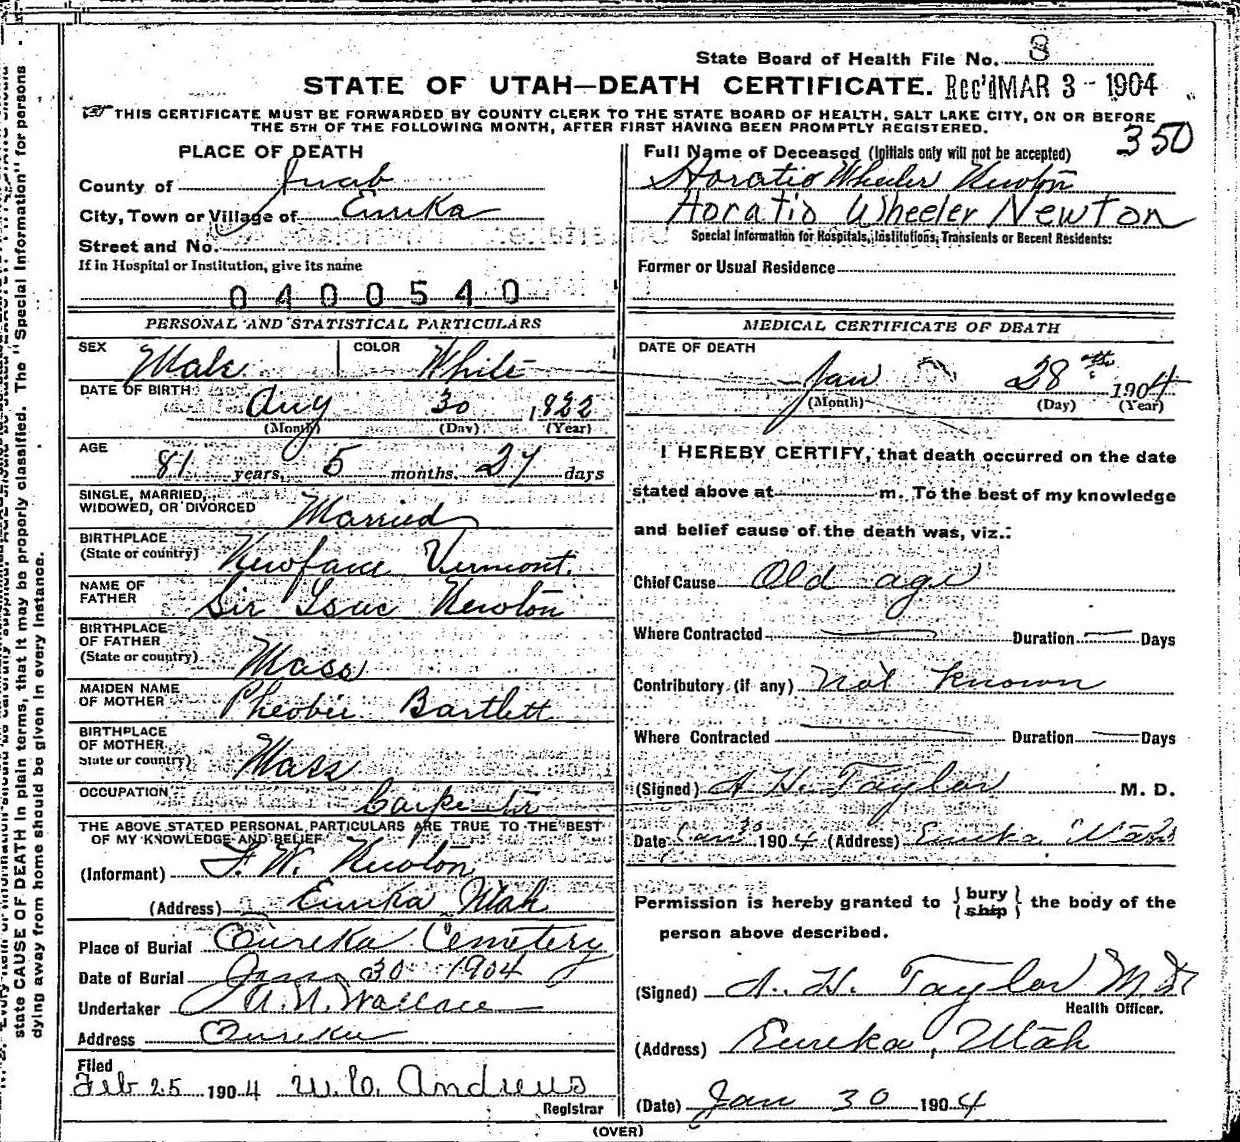 State Board of Health File No. 8
STATE OF UTAH—DEATH CERTIFICATE. Rec'd MAR 3 - 1904
THIS CERTIFICATE MUST BE FORWARDED BY COUNTY CLERK TO THE STATE BOARD OF HEALTH, SALT LAKE CITY, ON OR BEFORE
THE 5TH OF THE FOLLOWING MONTH, AFTER FIRST HAVING BEEN PROMPTLY REGISTERED.
350
PLACE OF DEATH
County of Juab
City, Town or Village of Eureka
Street and No.
If in Hospital or Institution, give its name
0400540
Full Name of Deceased (Initials only will not be accepted)
Horatio Wheeler Newton
Horatio Wheeler Newton
Special Information for Hospitals, Institutions, Transients or Recent Residents:
Former or Usual Residence
PERSONAL AND STATISTICAL PARTICULARS
SEX Male COLOR White
DATE OF BIRTH Aug 30 1822
(Month) (Day) (Year)
AGE 81 years, 5 months, 27 days
SINGLE, MARRIED,
WIDOWED, OR DIVORCED Married
BIRTHPLACE
(State or country) Newfane Vermont.
NAME OF
FATHER Sir Isac Newton
BIRTHPLACE
OF FATHER
(State or country) Mass
MAIDEN NAME
OF MOTHER Pheobie Bartlett
BIRTHPLACE
OF MOTHER
State or country) Mass
OCCUPATION Carpenter
THE ABOVE STATED PERSONAL PARTICULARS ARE TRUE TO THE BEST
OF MY KNOWLEDGE AND BELIEF
(Informant) F. W. Newton
(Address) Eureka Utah
Place of Burial Eureka Cemetery
Date of Burial Jan 30 1904
Undertaker A. N. Wallace
Address Eureka
Filed
Feb 25 1904 W. C. Andrews
Registrar
MEDICAL CERTIFICATE OF DEATH
DATE OF DEATH
Jan 28th 1904
(Month) (Day) (Year)
I HEREBY CERTIFY, that death occurred on the date
stated above at m. To the best of my knowledge
and belief cause of the death was, viz.:
Chief Cause Old age
Where Contracted — Duration — Days
Contributory (if any) Not Known
Where Contracted — Duration — Days
(Signed) A. H. Taylor M. D.
Date Jan 30 1904 (Address) Eureka Utah
Permission is hereby granted to {bury
ship} the body of the
person above described.
(Signed) A. H. Taylor M.D.
Health Officer.
(Address) Eureka, Utah
(Date) Jan 30 1904
(OVER)
state CAUSE OF DEATH in plain terms, that it may be properly classified. The "Special Information" for persons
dying away from home should be given in every instance.